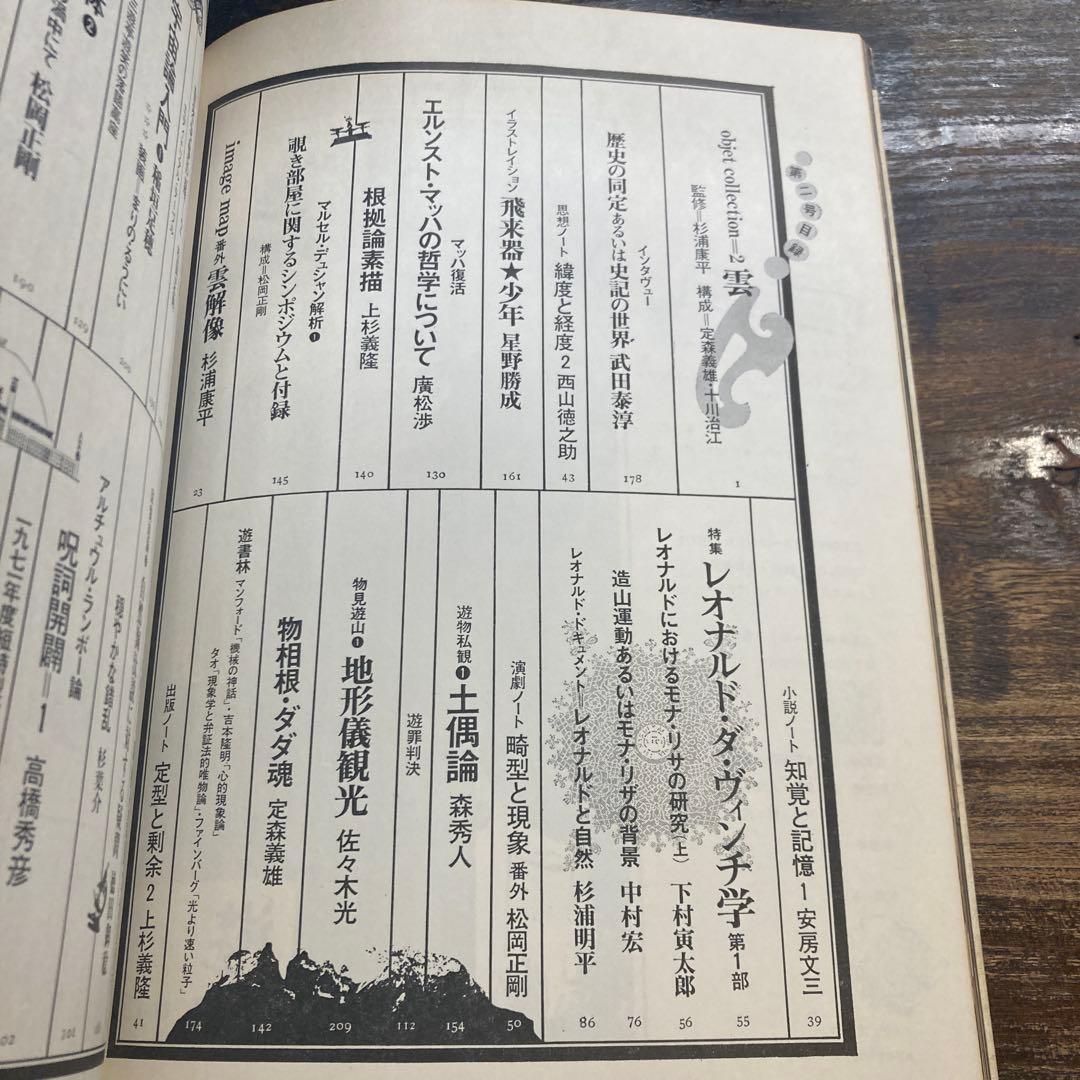 第二号目録
objet collection=2 雲
監修=杉浦康平 構成=定森義雄・十川治江
1
インタヴュー
歴史の同定あるいは史記の世界 武田泰淳
178
思想ノート 緯度と経度2 西山徳之助
43
イラストレイション 飛来器★少年 星野勝成
161
マッハ復活
エルンスト・マッハの哲学について 廣松渉
130
根拠論素描 上杉義隆
140
マルセル・デュシャン解析❶
覗き部屋に関するシンポジウムと付録
構成=松岡正剛
145
image map 番外 雲解像 杉浦康平
23
小説ノート 知覚と記憶1 安房文三
39
特集 レオナルド・ダ・ヴィンチ学 第1部
55
レオナルドにおけるモナ・リサの研究(上) 下村寅太郎
56
造山運動あるいはモナ・リザの背景 中村宏
76
レオナルド・ドキュメント=レオナルドと自然 杉浦明平
86
演劇ノート 畸型と現象 番外 松岡正剛
50
遊物私観❶土偶論 森秀人
154
遊罪判決
112
物見遊山❶ 地形儀観光 佐々木光
209
物相根・ダダ魂 定森義雄
142
遊書林 マンフォード「機械の神話」・吉本隆明「心的現象論」
タオ「現象学と弁証法的唯物論」・ファインバーグ「光より速い粒子」
174
出版ノート 定型と剰余2 上杉義隆
41
宇宙論入門❶ 稲垣足穂
中にて 松岡正剛
アルチュウル・ランボー論
穏やかな錯乱 杉葉介
呪詞開闢=1 高橋秀彦
一九七一年度